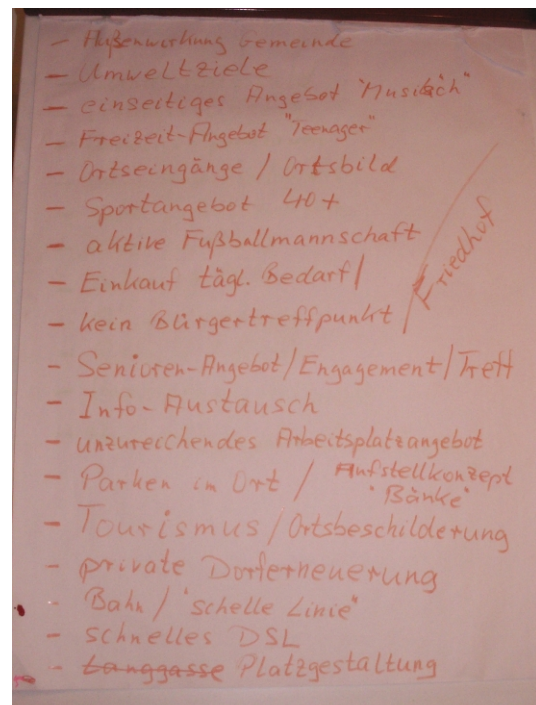 - Außenwirkung Gemeinde
- Umweltziele
- einseitiges Angebot "Musikach"
- Freizeit-Angebot "Teenager"
- Ortseingänge / Ortsbild
- Sportangebot 40+
- aktive Fußballmannschaft
- Einkauf tägl. Bedarf /
- kein Bürgertreffpunkt / Friedhof
- Senioren-Angebot / Engagement / Treff
- Info-Austausch
- unzureichendes Arbeitsplatzangebot
- Parken im Ort / Aufstellkonzept
"Bänke"
- Tourismus / Ortsbeschilderung
- private Dorferneuerung
- Bahn / "schelle Linie"
- schnelles DSL
- Langgasse Platzgestaltung